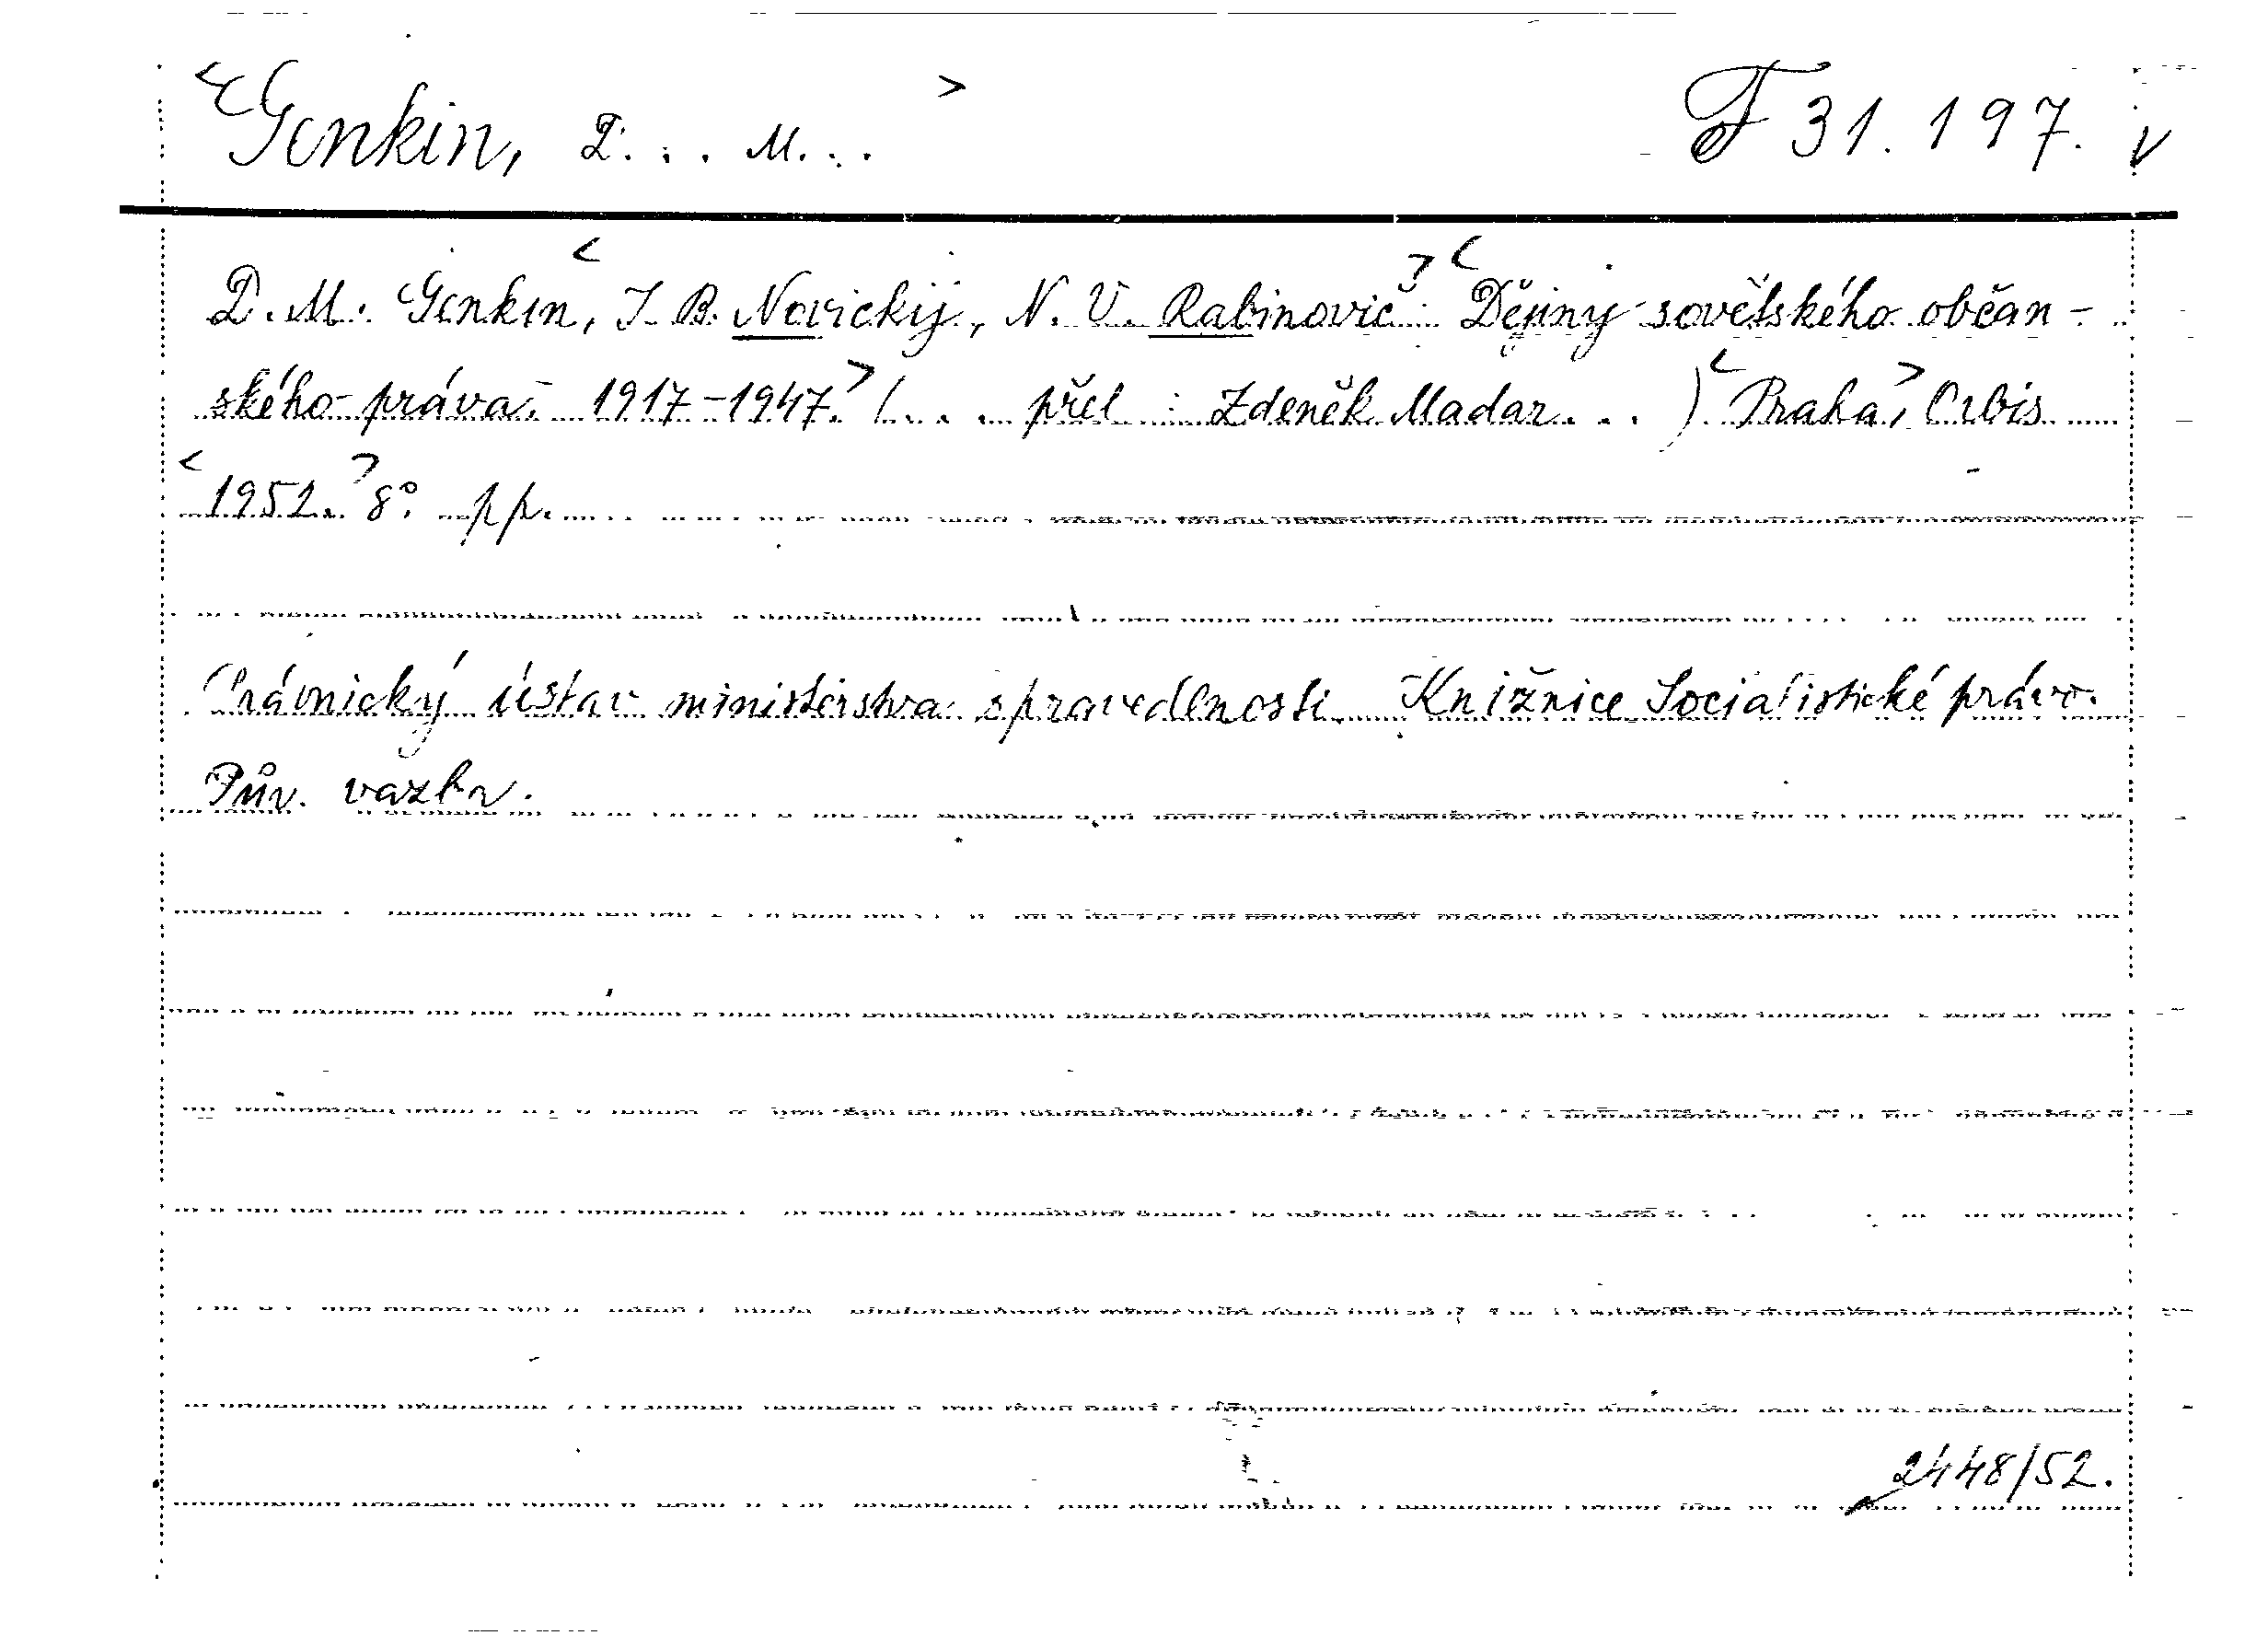 <Genkin, D... M...> F 31.197. v
D. M. Genkin, <I. B. Novickij, N. V. Rabinovič>: <Dějiny sovětského občan-
ského práva. 1917-1947.> (... přel. : Zdeněk Madar...) <Praha>, Orbis
<1952.> 8°. pp.
Právnický ústav ministerstva spravedlnosti. Knižnice Socialistické právo.
Pův. vazba.
2448/52.